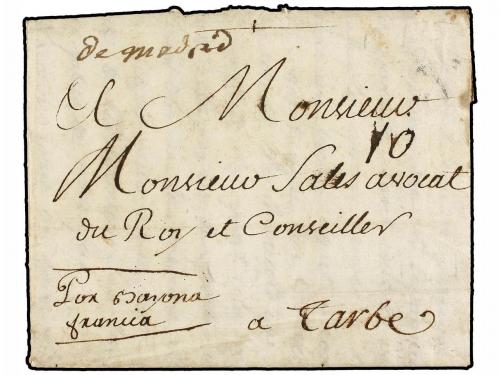 de madrid
A Monsieur
10
Monsieur Sales avocat
du Roy et Conseiller
Por Bayona
francia
a Tarbe